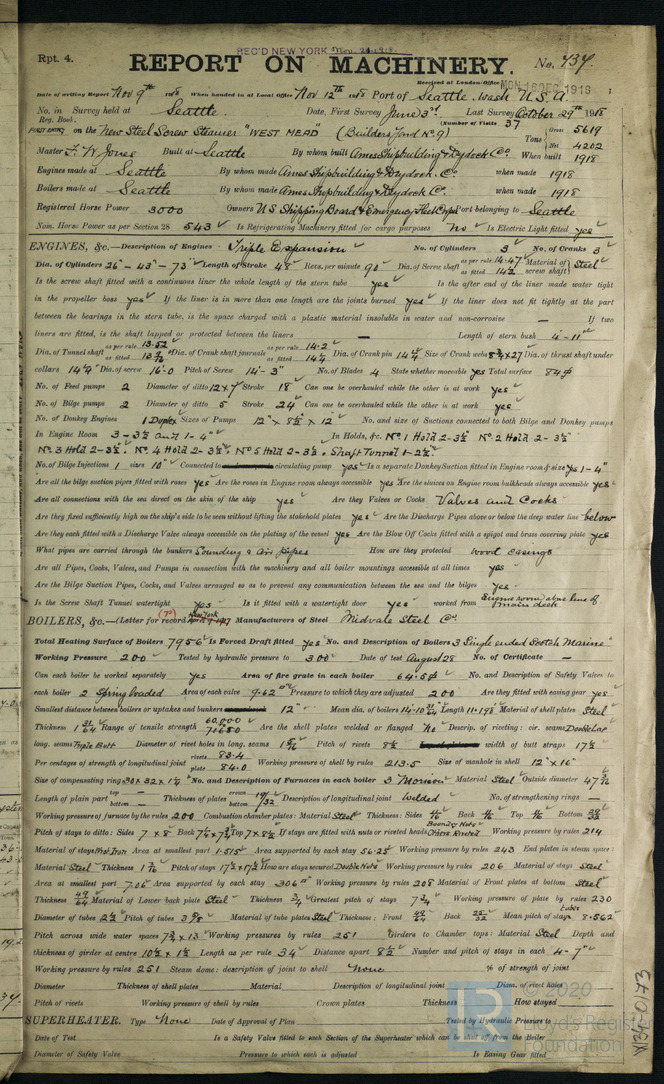 REC'D NEW YORK Nov. 21 1918
Rpt. 4.
REPORT ON MACHINERY. No. 737.
Received at London Office MON. 16 DEC. 1918
Date of writing Report Nov 9th 1918 When handed in at Local Office Nov 12th 1918 Port of Seattle. Wash. U.S.A.
No. in Survey held at Seattle. Date, First Survey June 3rd Last Survey October 29th 1918
Reg. Book. (Number of Visits 37
FIRST ENTRY on the New Steel Screw Steamer "WEST MEAD" (Builders Yard No 9) Tons Gross 5619 Net 4202
Master F. W. Jones Built at Seattle By whom built Ames Shipbuilding & Drydock Co When built 1918
Engines made at Seattle By whom made Ames Shipbuilding & Drydock Co. when made 1918
Boilers made at Seattle By whom made Ames Shipbuilding & Drydock Co. when made 1918
Registered Horse Power 3000 Owners U S Shipping Board & Emergency Fleet Corp Port belonging to Seattle
Nom. Horse Power as per Section 28 543 Is Refrigerating Machinery fitted for cargo purposes No Is Electric Light fitted yes
ENGINES, &c.—Description of Engines Triple Expansion No. of Cylinders 3 No. of Cranks 3
Dia. of Cylinders 26" – 43" – 73" Length of Stroke 48" Revs. per minute 90 Dia. of Screw shaft as per rule 14.47 as fitted 14 3/4 Material of screw shaft Steel
Is the screw shaft fitted with a continuous liner the whole length of the stern tube yes Is the after end of the liner made water tight
in the propeller boss yes If the liner is in more than one length are the joints burned yes If the liner does not fit tightly at the part
between the bearings in the stern tube, is the space charged with a plastic material insoluble in water and non-corrosive — If two
liners are fitted, is the shaft lapped or protected between the liners — Length of stern bush 4-11"
Dia. of Tunnel shaft as per rule 13.52 as fitted 13 3/4 Dia. of Crank shaft journals as per rule 14.2 as fitted 14 1/4 Dia. of Crank pin 14 1/4 Size of Crank webs 8 3/4 x 27 Dia. of thrust shaft under
collars 14 1/4 Dia. of screw 16-0 Pitch of Screw 14-3" No. of Blades 4 State whether moveable yes Total surface 84
No. of Feed pumps 2 Diameter of ditto Stroke 18 Can one be overhauled while the other is at work yes
No. of Bilge pumps 2 Diameter of ditto 5 Stroke 24 Can one be overhauled while the other is at work yes
No. of Donkey Engines 1 Duplex Sizes of Pumps 12" x 8 1/2 x 12" No. and size of Suctions connected to both Bilge and Donkey pumps
In Engine Room 3-3 1/2 and 1-4" In Holds, &c. No 1 Hold 2-3 1/2 No 2 Hold 2-3 1/2"
No 3 Hold 2-3 1/2", No 4 Hold 2-3 1/2", No 5 Hold 2-3 1/2, Shaft Tunnel 1-2 1/2"
No. of Bilge Injections 1 sizes 10" Connected to circulating pump yes Is a separate Donkey Suction fitted in Engine room & size yes 1-4"
Are all the bilge suction pipes fitted with roses yes Are the roses in Engine room always accessible yes Are the sluices on Engine room bulkheads always accessible yes
Are all connections with the sea direct on the skin of the ship yes Are they Valves or Cocks Valves and Cocks
Are they fixed sufficiently high on the ship's side to be seen without lifting the stokehold plates yes Are the Discharge Pipes above or below the deep water line below
Are they each fitted with a Discharge Valve always accessible on the plating of the vessel yes Are the Blow Off Cocks fitted with a spigot and brass covering plate yes
What pipes are carried through the bunkers Sounding & Air pipes How are they protected wood casings
Are all Pipes, Cocks, Valves, and Pumps in connection with the machinery and all boiler mountings accessible at all times yes
Are the Bilge Suction Pipes, Cocks, and Valves arranged so as to prevent any communication between the sea and the bilges yes
Is the Screw Shaft Tunnel watertight yes Is it fitted with a watertight door yes worked from Engine room above line of main deck
BOILERS, &c.—(Letter for record Manufacturers of Steel Midvale Steel Co.
Total Heating Surface of Boilers 7956 Is Forced Draft fitted yes No. and Description of Boilers 3 Single ended Scotch Marine
Working Pressure 200 Tested by hydraulic pressure to 300 Date of test August 28 No. of Certificate —
Can each boiler be worked separately yes Area of fire grate in each boiler 64.5 No. and Description of Safety Valves to
each boiler 2 Spring loaded Area of each valve 9.62 Pressure to which they are adjusted 200 Are they fitted with easing gear yes
Smallest distance between boilers or uptakes and bunkers 12" Mean dia. of boilers Length Material of shell plates Steel
Thickness Range of tensile strength 60,000 71680 Are the shell plates welded or flanged No Descrip. of riveting: cir. seams Double Lap
long. seams Triple Butt Diameter of rivet holes in long. seams Pitch of rivets width of butt straps
Per centages of strength of longitudinal joint rivets 83.4 plate 84.0 Working pressure of shell by rules 213.5 Size of manhole in shell 12" x 16"
Size of compensating ring No. and Description of Furnaces in each boiler 3 Morison Material Steel Outside diameter
Length of plain part top — bottom — Thickness of plates crown bottom 19/32 Description of longitudinal joint Welded No. of strengthening rings —
Working pressure of furnace by the rules 200 Combustion chamber plates: Material Steel Thickness: Sides Back Top Bottom
Pitch of stays to ditto: Sides 7 x 8 Back Top If stays are fitted with nuts or riveted heads Working pressure by rules 214
Material of stays Area at smallest part 1.515 Area supported by each stay 56.25 Working pressure by rules 243 End plates in steam space:
Material Steel Thickness Pitch of stays How are stays secured Double Nuts Working pressure by rules 206 Material of stays Steel
Area at smallest part 7.06 Area supported by each stay 306 Working pressure by rules 208 Material of Front plates at bottom Steel
Thickness Material of Lower back plate Steel Thickness 3/4 Greatest pitch of stays Working pressure of plate by rules 230
Diameter of tubes Pitch of tubes Material of tube plates Steel Thickness: Front Back 25/32 Mean pitch of stays 8.562
Pitch across wide water spaces Working pressures by rules 251 Girders to Chamber tops: Material Steel Depth and
thickness of girder at centre Length as per rule 34 Distance apart 8 1/2 Number and pitch of stays in each 4-7"
Working pressure by rules 251 Steam dome: description of joint to shell None % of strength of joint
Diameter Thickness of shell plates Material Description of longitudinal joint Diam. of rivet holes
Pitch of rivets Working pressure of shell by rules Crown plates Thickness How stayed
SUPERHEATER. Type None Date of Approval of Plan Tested by Hydraulic Pressure to
Date of Test Is a Safety Valve fitted to each Section of the Superheater which can be shut off from the Boiler
Diameter of Safety Valve Pressure to which each is adjusted Is Easing Gear fitted
© 2020
Lloyd's Register
Foundation